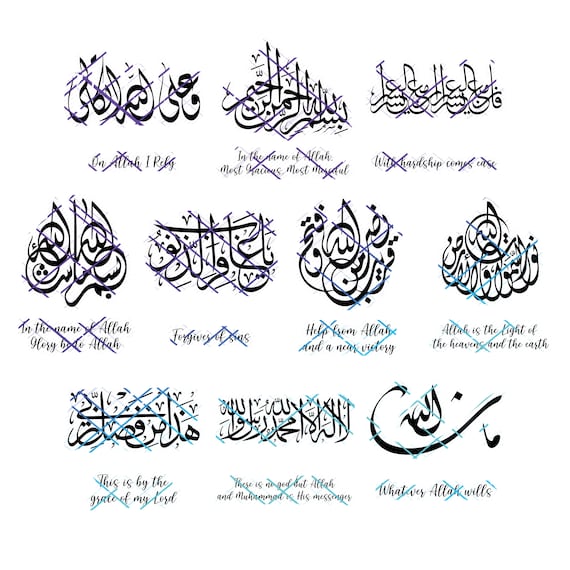 وعلى الله اتكالي
On Allah I Rely
بسم الله الرحمن الرحيم
In the name of Allah,
Most Gracious, Most Merciful
With hardship comes ease
بسم الله ما شاء الله
In the name of Allah
Glory be to Allah
يا غافر الذنوب
Forgiver of sins
نصر من الله وفتح قريب
Help from Allah
and a near victory
الله نور السموات والأرض
Allah is the Light of
the heavens and the earth
هذا من فضل ربي
This is by the
grace of my Lord
لا اله الا الله محمد رسول الله
There is no god but Allah
and Muhammad is His messenger
ما شاء الله
What ver Allah wills